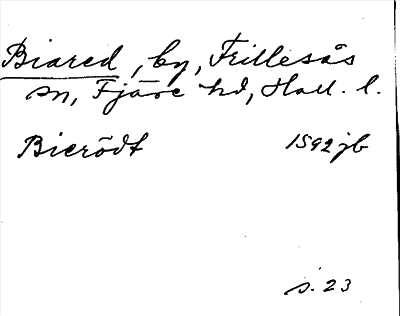 Biared, by, Frillesås
sn, Fjäre hd, Hall. l.
Bierödt 1592 jb
s. 23